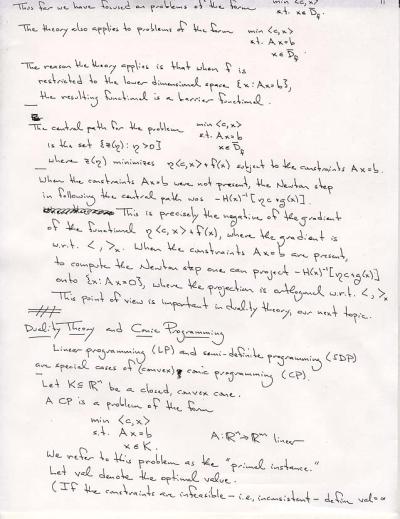 Thus far we have focused on problems of the form min <c,x>
s.t. x ∈ D̄_f.
The theory also applies to problems of the form min <c,x>
s.t. Ax=b
x ∈ D̄_f
The reason the theory applies is that when f is
restricted to the lower dimensional space {x: Ax=b},
the resulting functional is a barrier functional.
The central path for the problem min <c,x>
s.t. Ax=b
x ∈ D̄_f
is the set {z(η): η>0}
where z(η) minimizes η<c,x>+f(x) subject to the constraints Ax=b.
When the constraints Ax=b were not present, the Newton step
in following the central path was -H(x)⁻¹[ηc+g(x)].
This is precisely the negative of the gradient
of the functional η<c,x>+f(x), where the gradient is
w.r.t. < , >ₓ. When the constraints Ax=b are present,
to compute the Newton step one can project -H(x)⁻¹[ηc+g(x)]
onto {x: Ax=0}, where the projection is orthogonal w.r.t. < , >ₓ
This point of view is important in duality theory, our next topic.
Duality Theory and Conic Programming
Linear programming (LP) and semi-definite programming (SDP)
are special cases of (convex) conic programming (CP).
Let K⊆ℝⁿ be a closed, convex cone.
A CP is a problem of the form
min <c,x>
s.t. Ax=b A:ℝⁿ→ℝᵐ linear
x ∈ K.
We refer to this problem as the "primal instance."
Let val denote the optimal value.
(If the constraints are infeasible - i.e., inconsistent - define val=∞